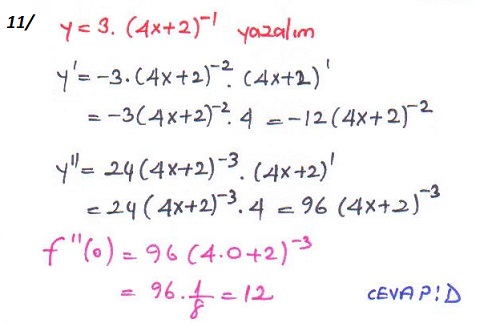 11/ y = 3. (4x+2)⁻¹ yazalım
y' = -3.(4x+2)⁻². (4x+2)'
= -3(4x+2)⁻². 4 = -12(4x+2)⁻²
y'' = 24(4x+2)⁻³. (4x+2)'
= 24(4x+2)⁻³. 4 = 96 (4x+2)⁻³
f''(0) = 96 (4.0+2)⁻³
= 96. 1/8 = 12 CEVAP: D